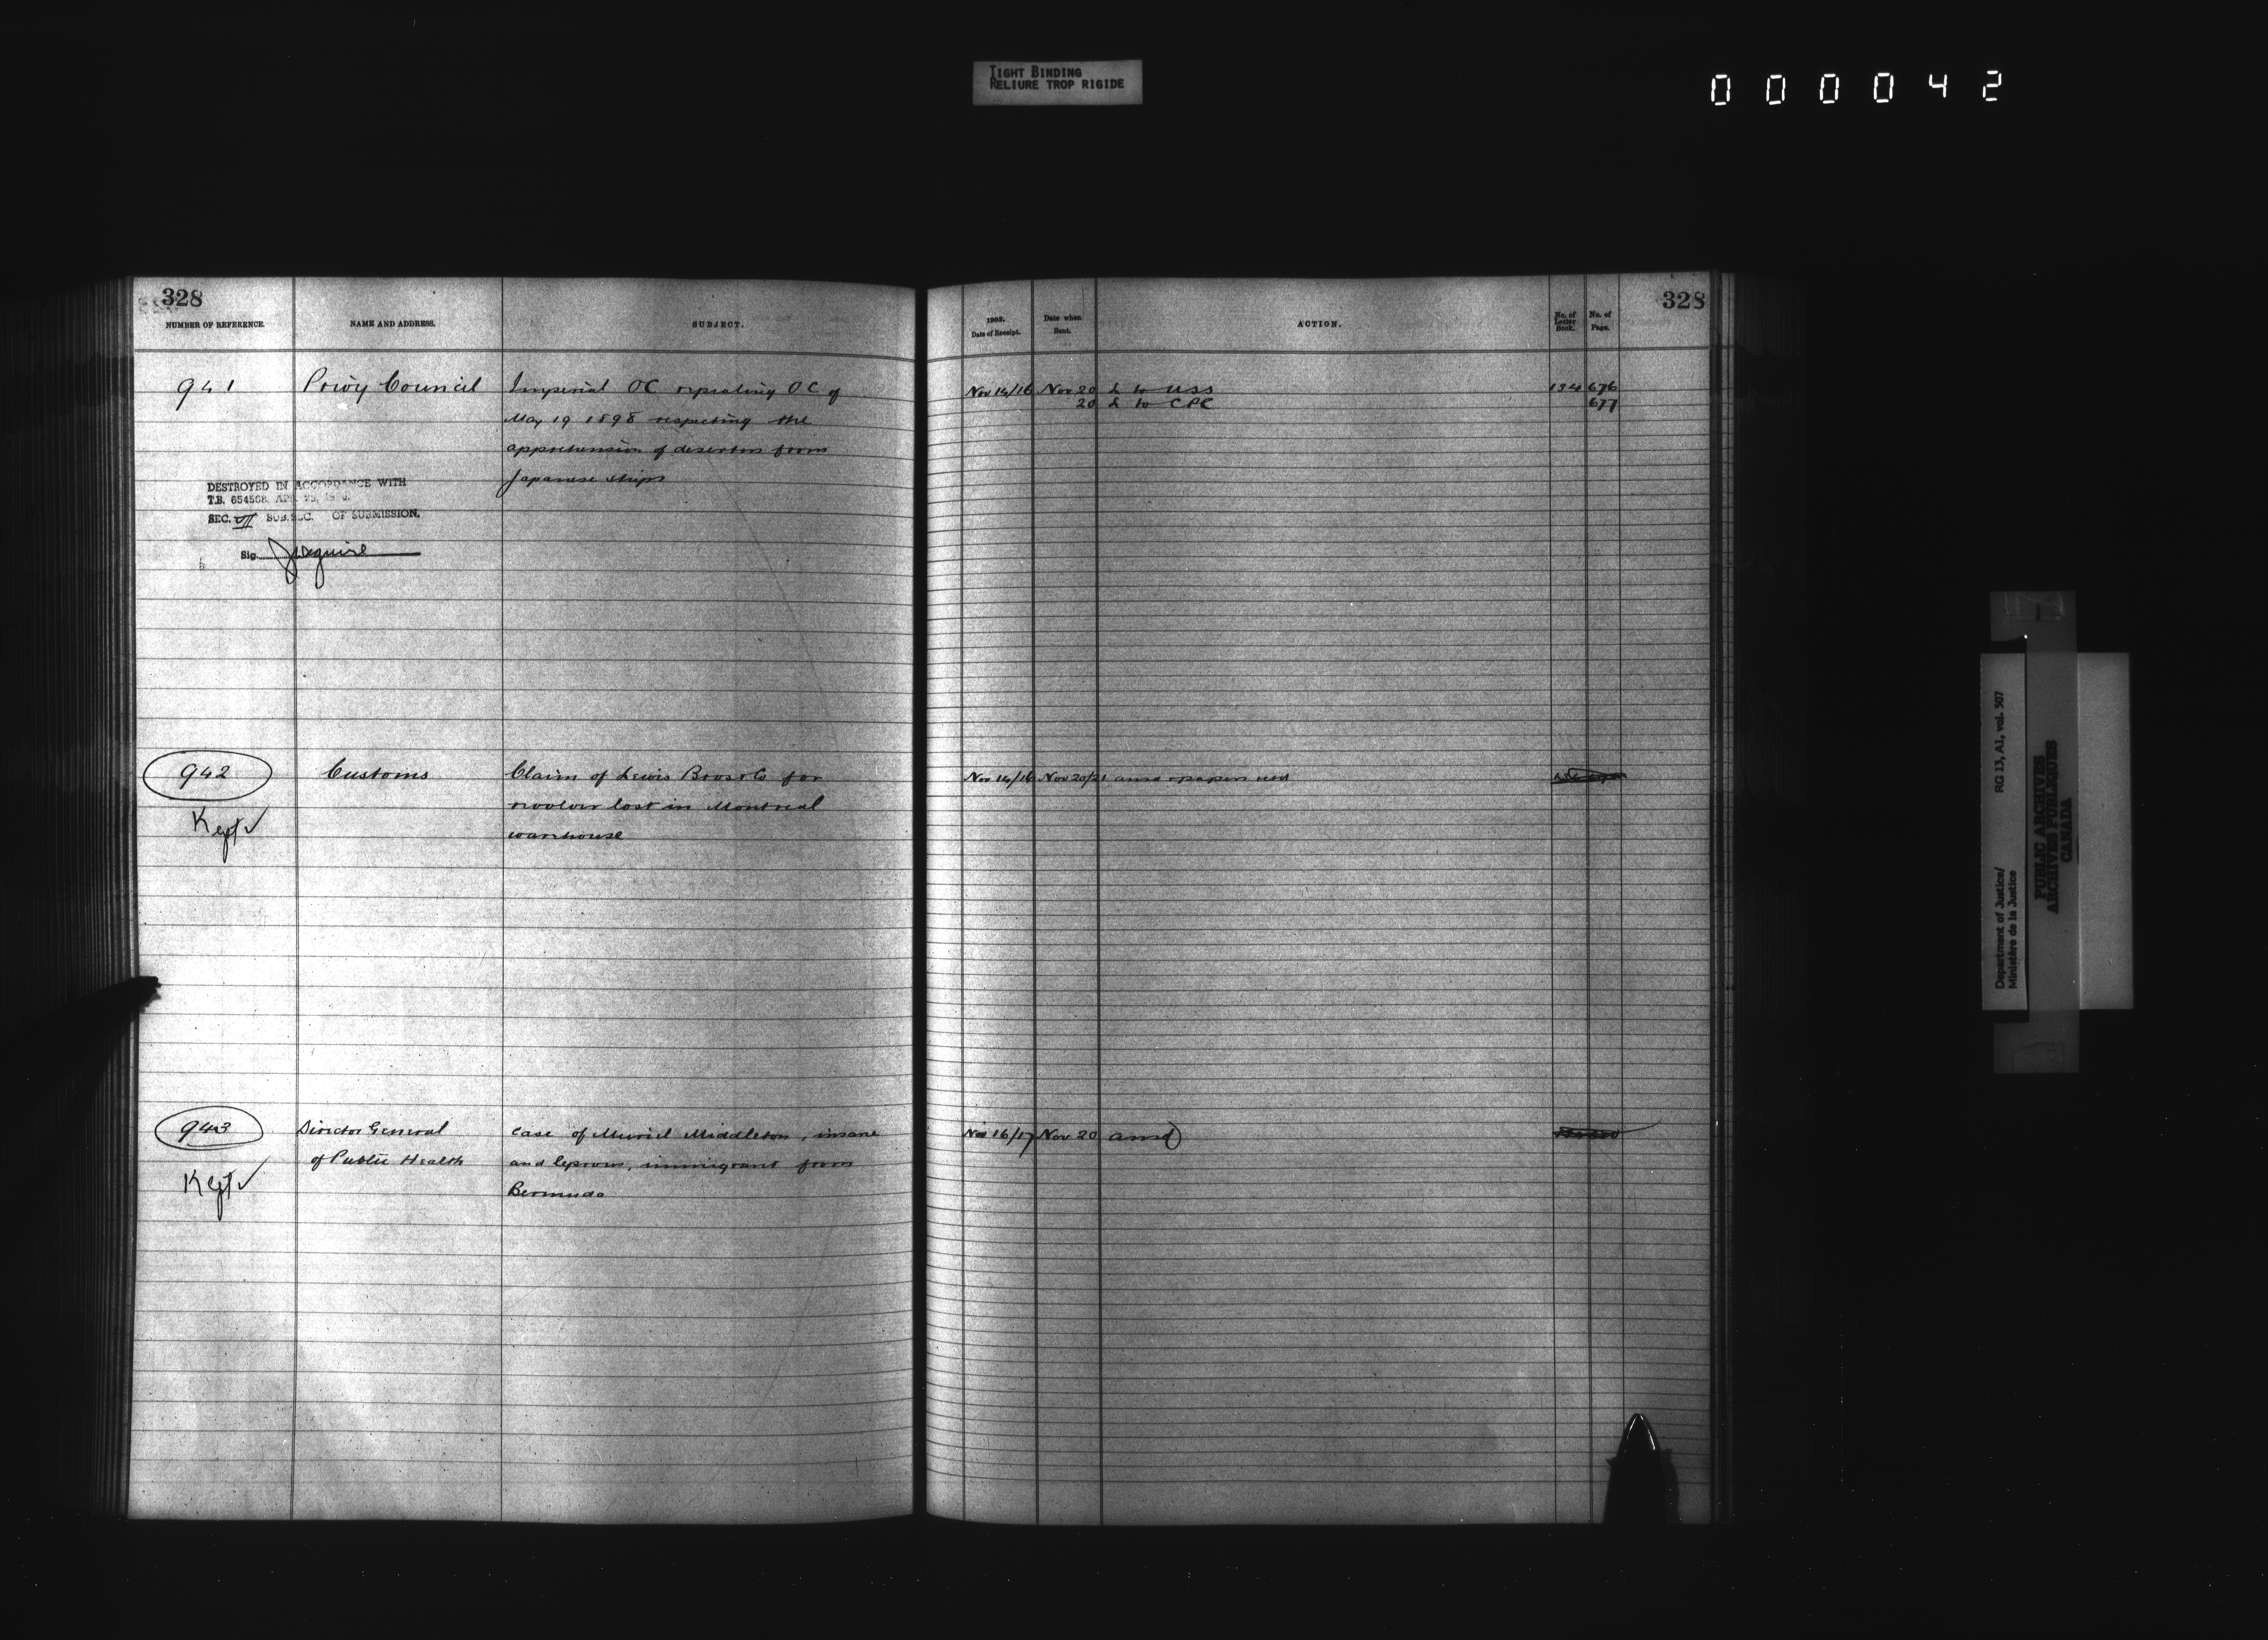 TIGHT BINDING
RELIURE TROP RIGIDE
0 0 0 0 4 2
328
NUMBER OF REFERENCE.
NAME AND ADDRESS.
SUBJECT.
941
Privy Council
Imperial OC repealing OC of
May 19 1898 respecting the
apprehension of deserters from
Japanese ships
DESTROYED IN ACCORDANCE WITH
T.B. 654568 APR. 25,
SEC. VII SUB.SEC. OF SUBMISSION.
Sig. JMaguire
942
Kept ✓
Customs
Claim of Lewis Bros & Co for
revolver lost in Montreal
warehouse
943
Kept ✓
Director General
of Public Health
Case of Muriel Middleton, insane
and leprous, immigrant from
Bermuda
328
1903.
Date of Receipt.
Date when
Sent.
ACTION.
No. of
Letter
Book.
No. of
Page.
Nov 14/16 Nov 20 L to USS 134 676
20 L to CPC 677
Nov 14/16 Nov 20/21 ansd papers
Nov 16/17 Nov 20 ansd
Department of Justice/
Ministère de la Justice
RG 13, A1, vol. 507
PUBLIC ARCHIVES
ARCHIVES PUBLIQUES
CANADA